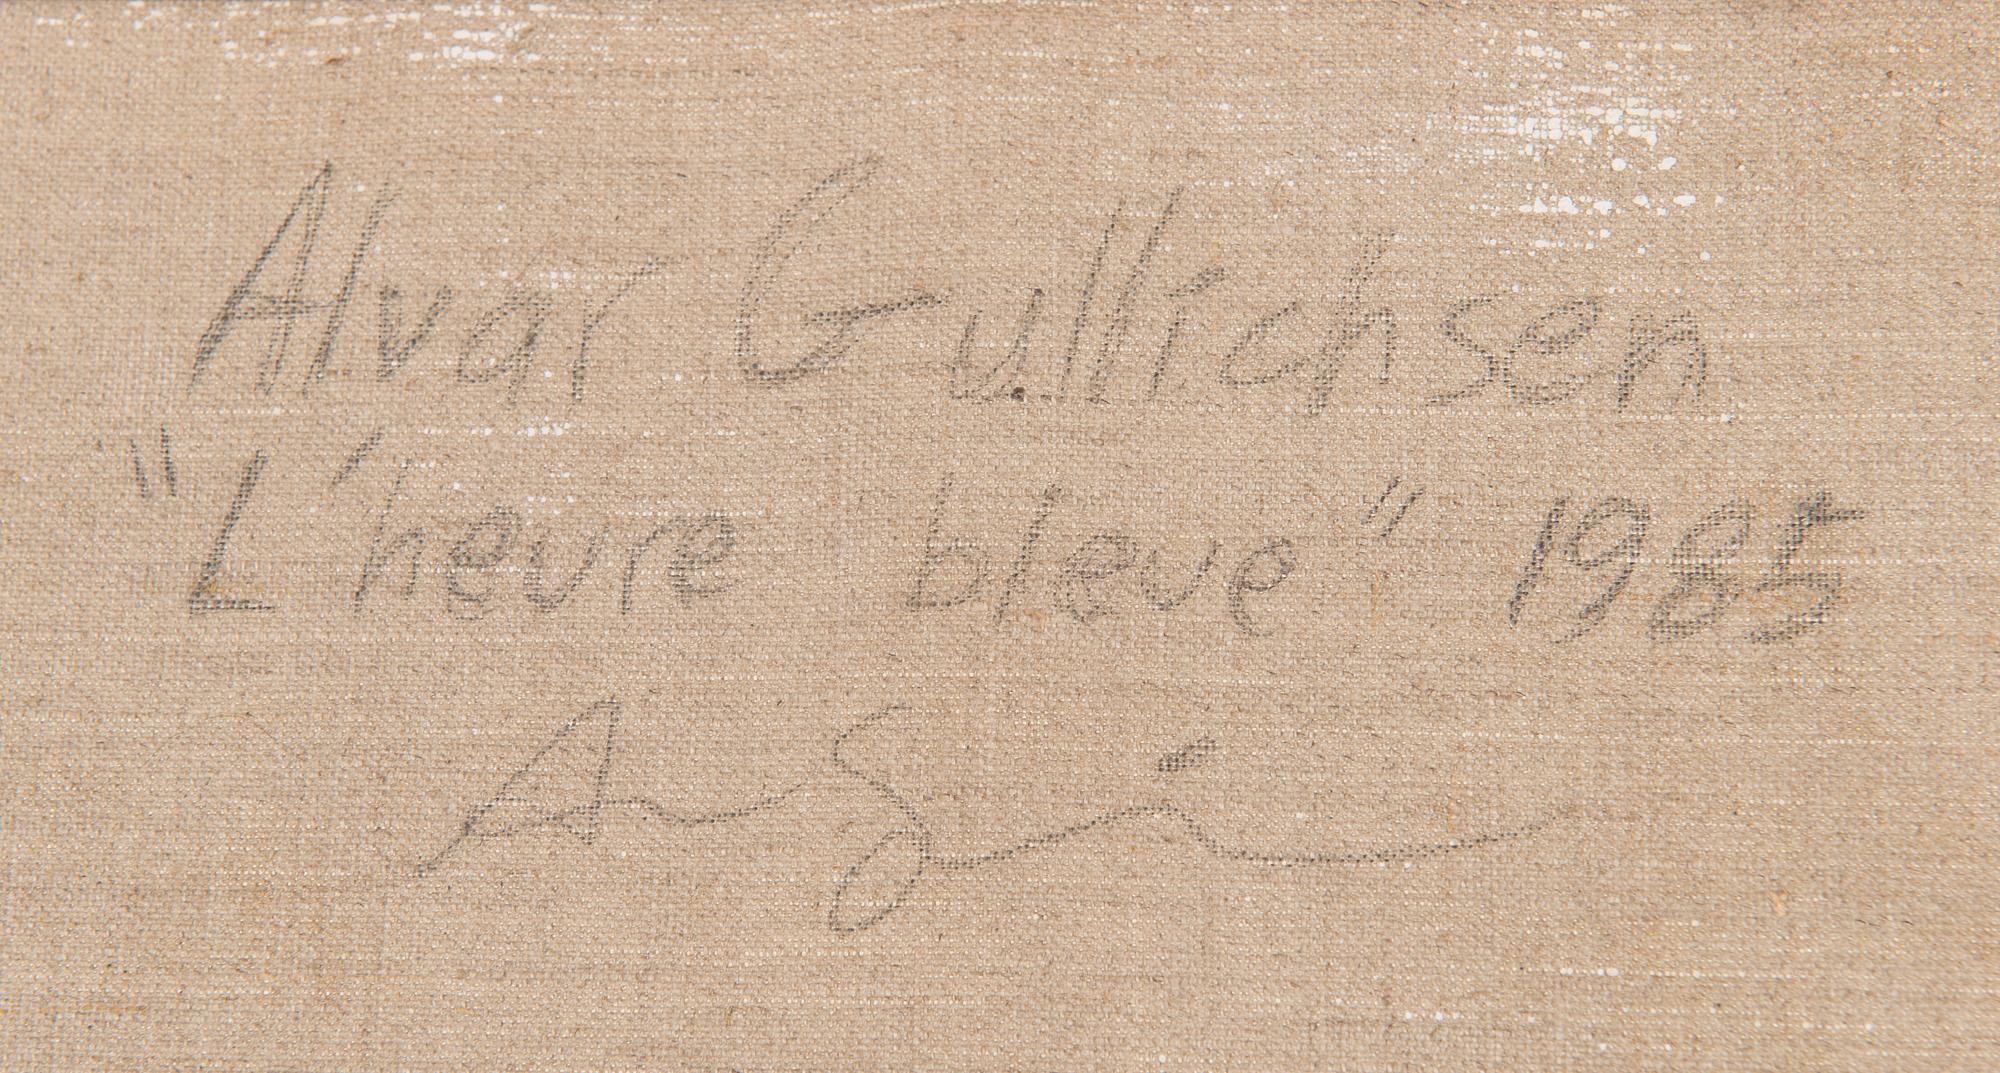 Alvar Gullichsen
"L'heure bleue" 1985